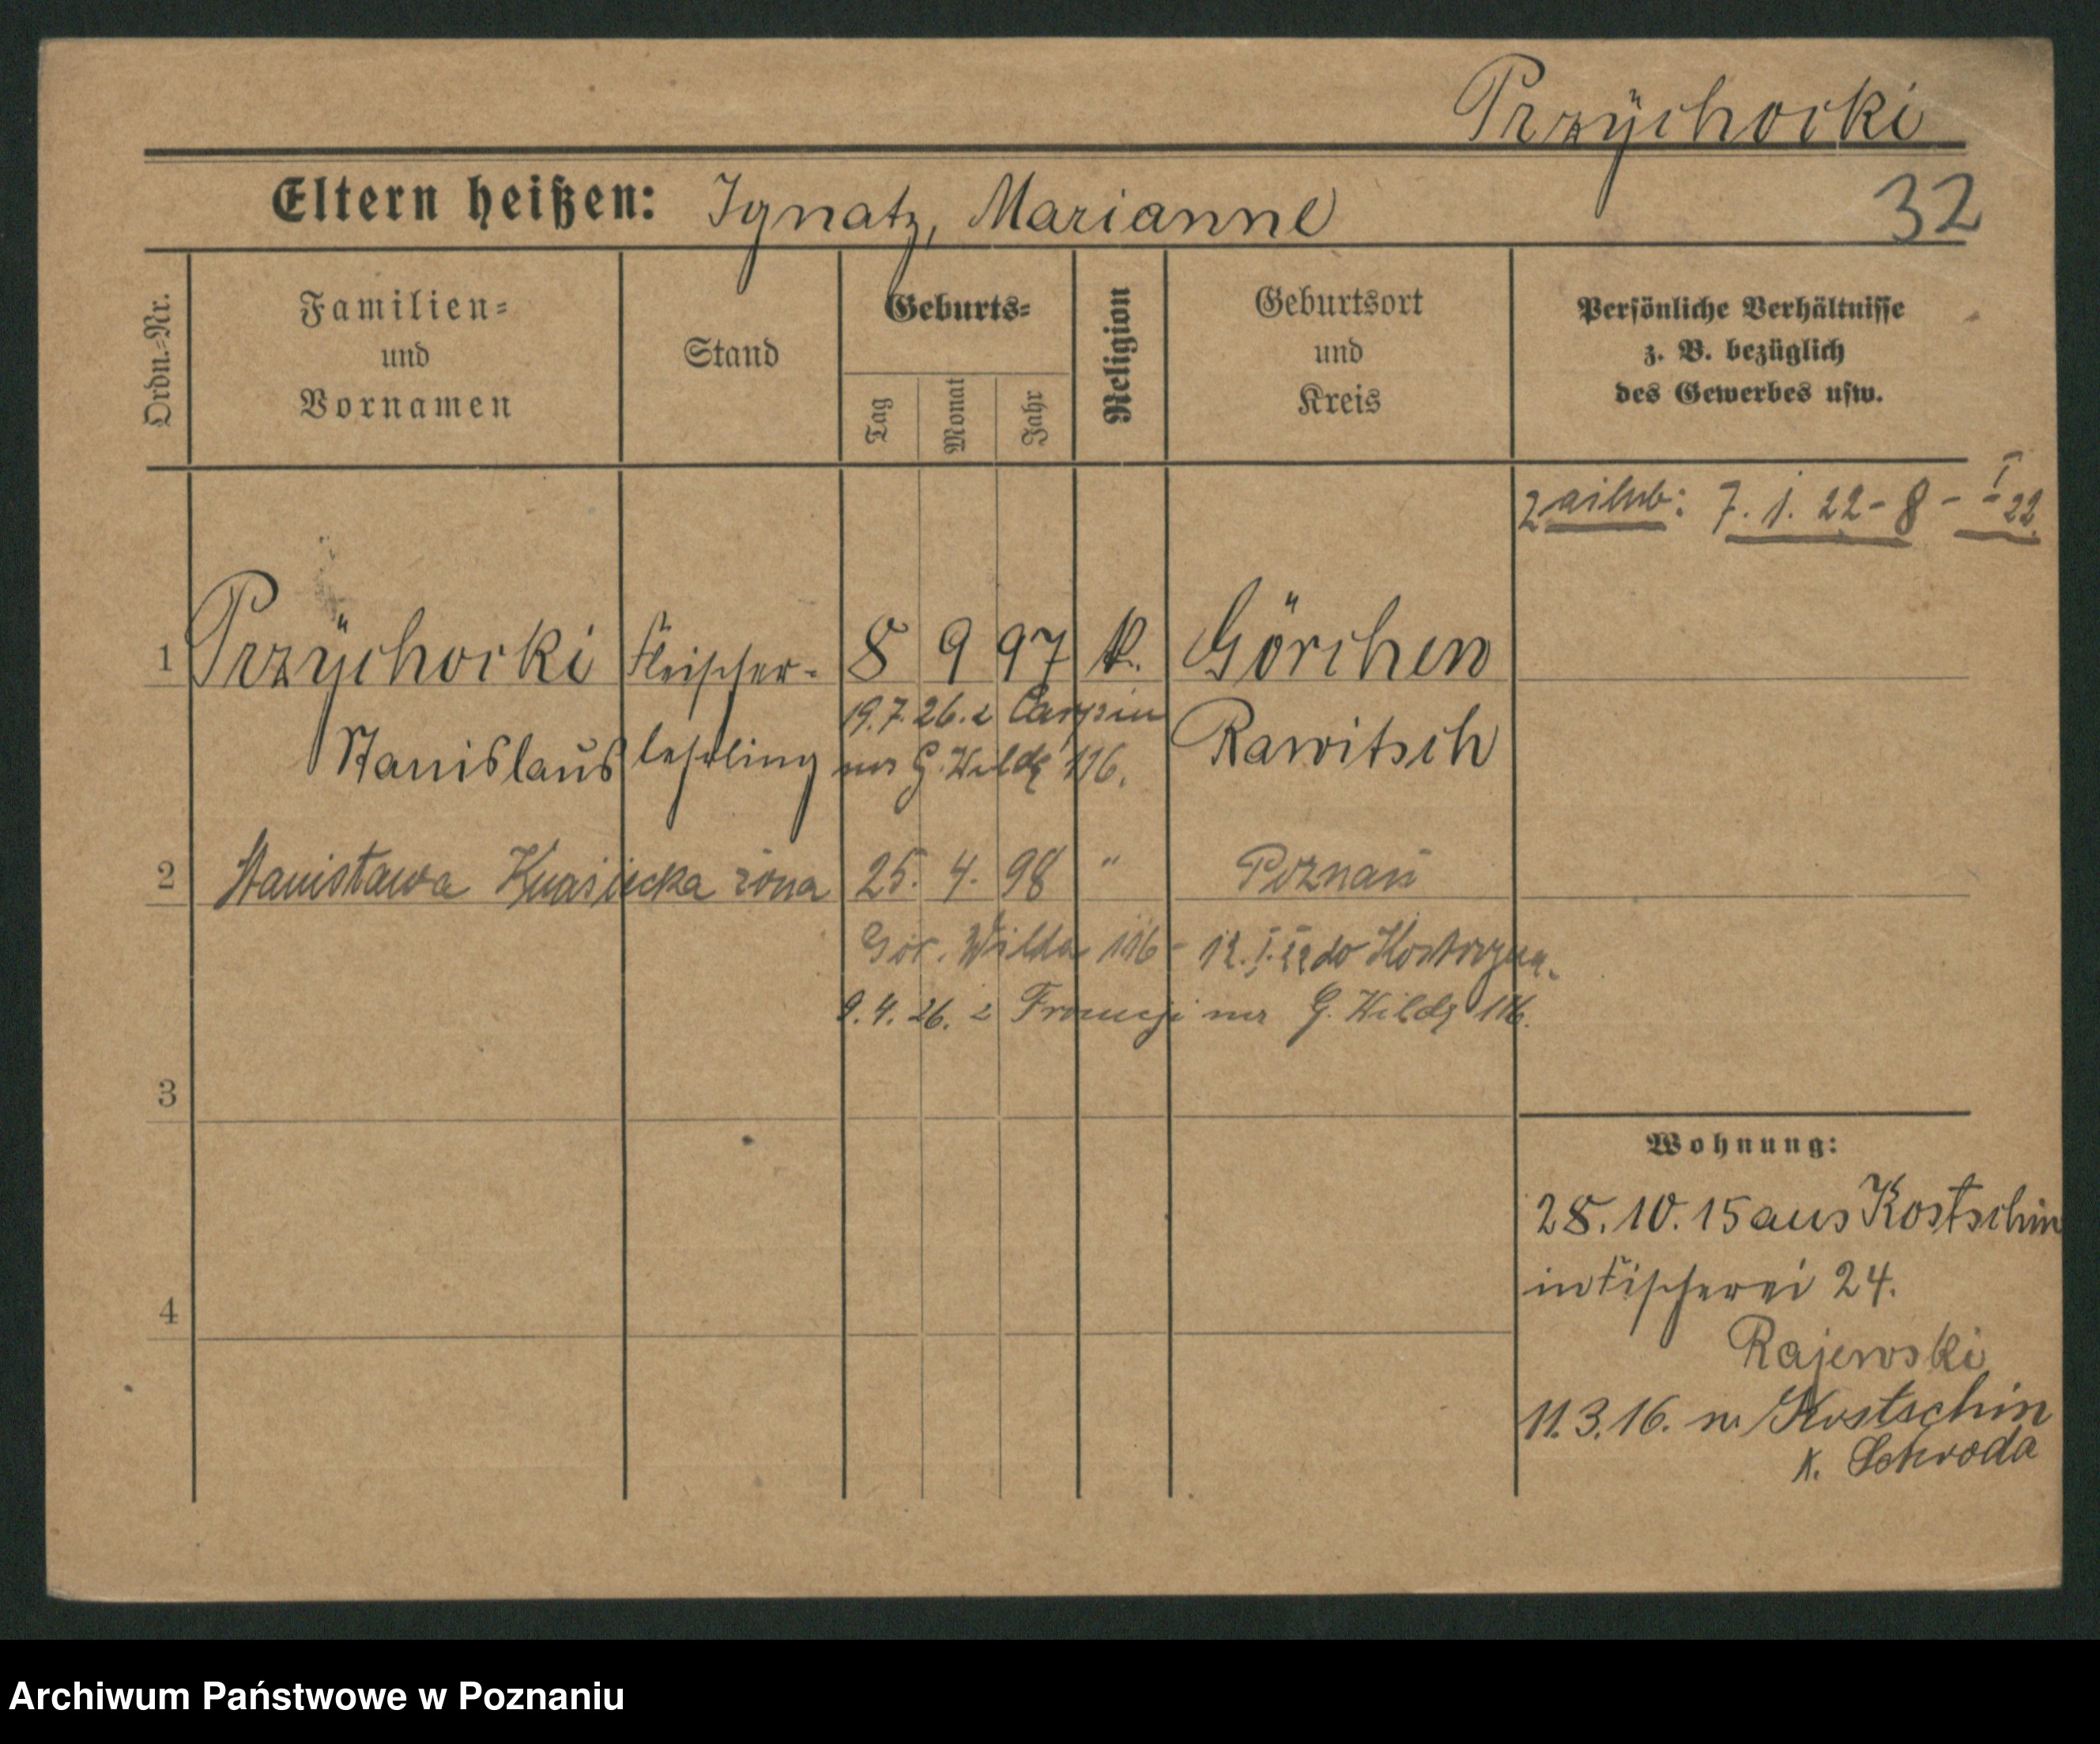 Przÿchocki
Eltern heißen: Ignatz, Marianne
32
Ordn.-Nr.
Familien-
und
Vornamen
Stand
Geburts-
Tag
Monat
Jahr
Religion
Geburtsort
und
Kreis
Persönliche Verhältnisse
z. B. bezüglich
des Gewerbes usw.
7. 1. 22 - 8 - I - 22
1 Przÿchocki Fleischer- 8 9 97 k. Görchen
Stanislaus lehrling Rawitsch
19.7.26. z
G. Wildę 116.
2 Stanisława żona 25. 4. 98 " Poznań
Gór. Wilda 116 - 12. I. 22 do Kostrzyna.
9. 4. 26. z Francji na G. Wildę 116.
3
4
Wohnung:
28. 10. 15 aus Kostschin
in Fischerei 24.
Rajewski
11. 3. 16. n. Kostschin
K. Schroda
Archiwum Państwowe w Poznaniu